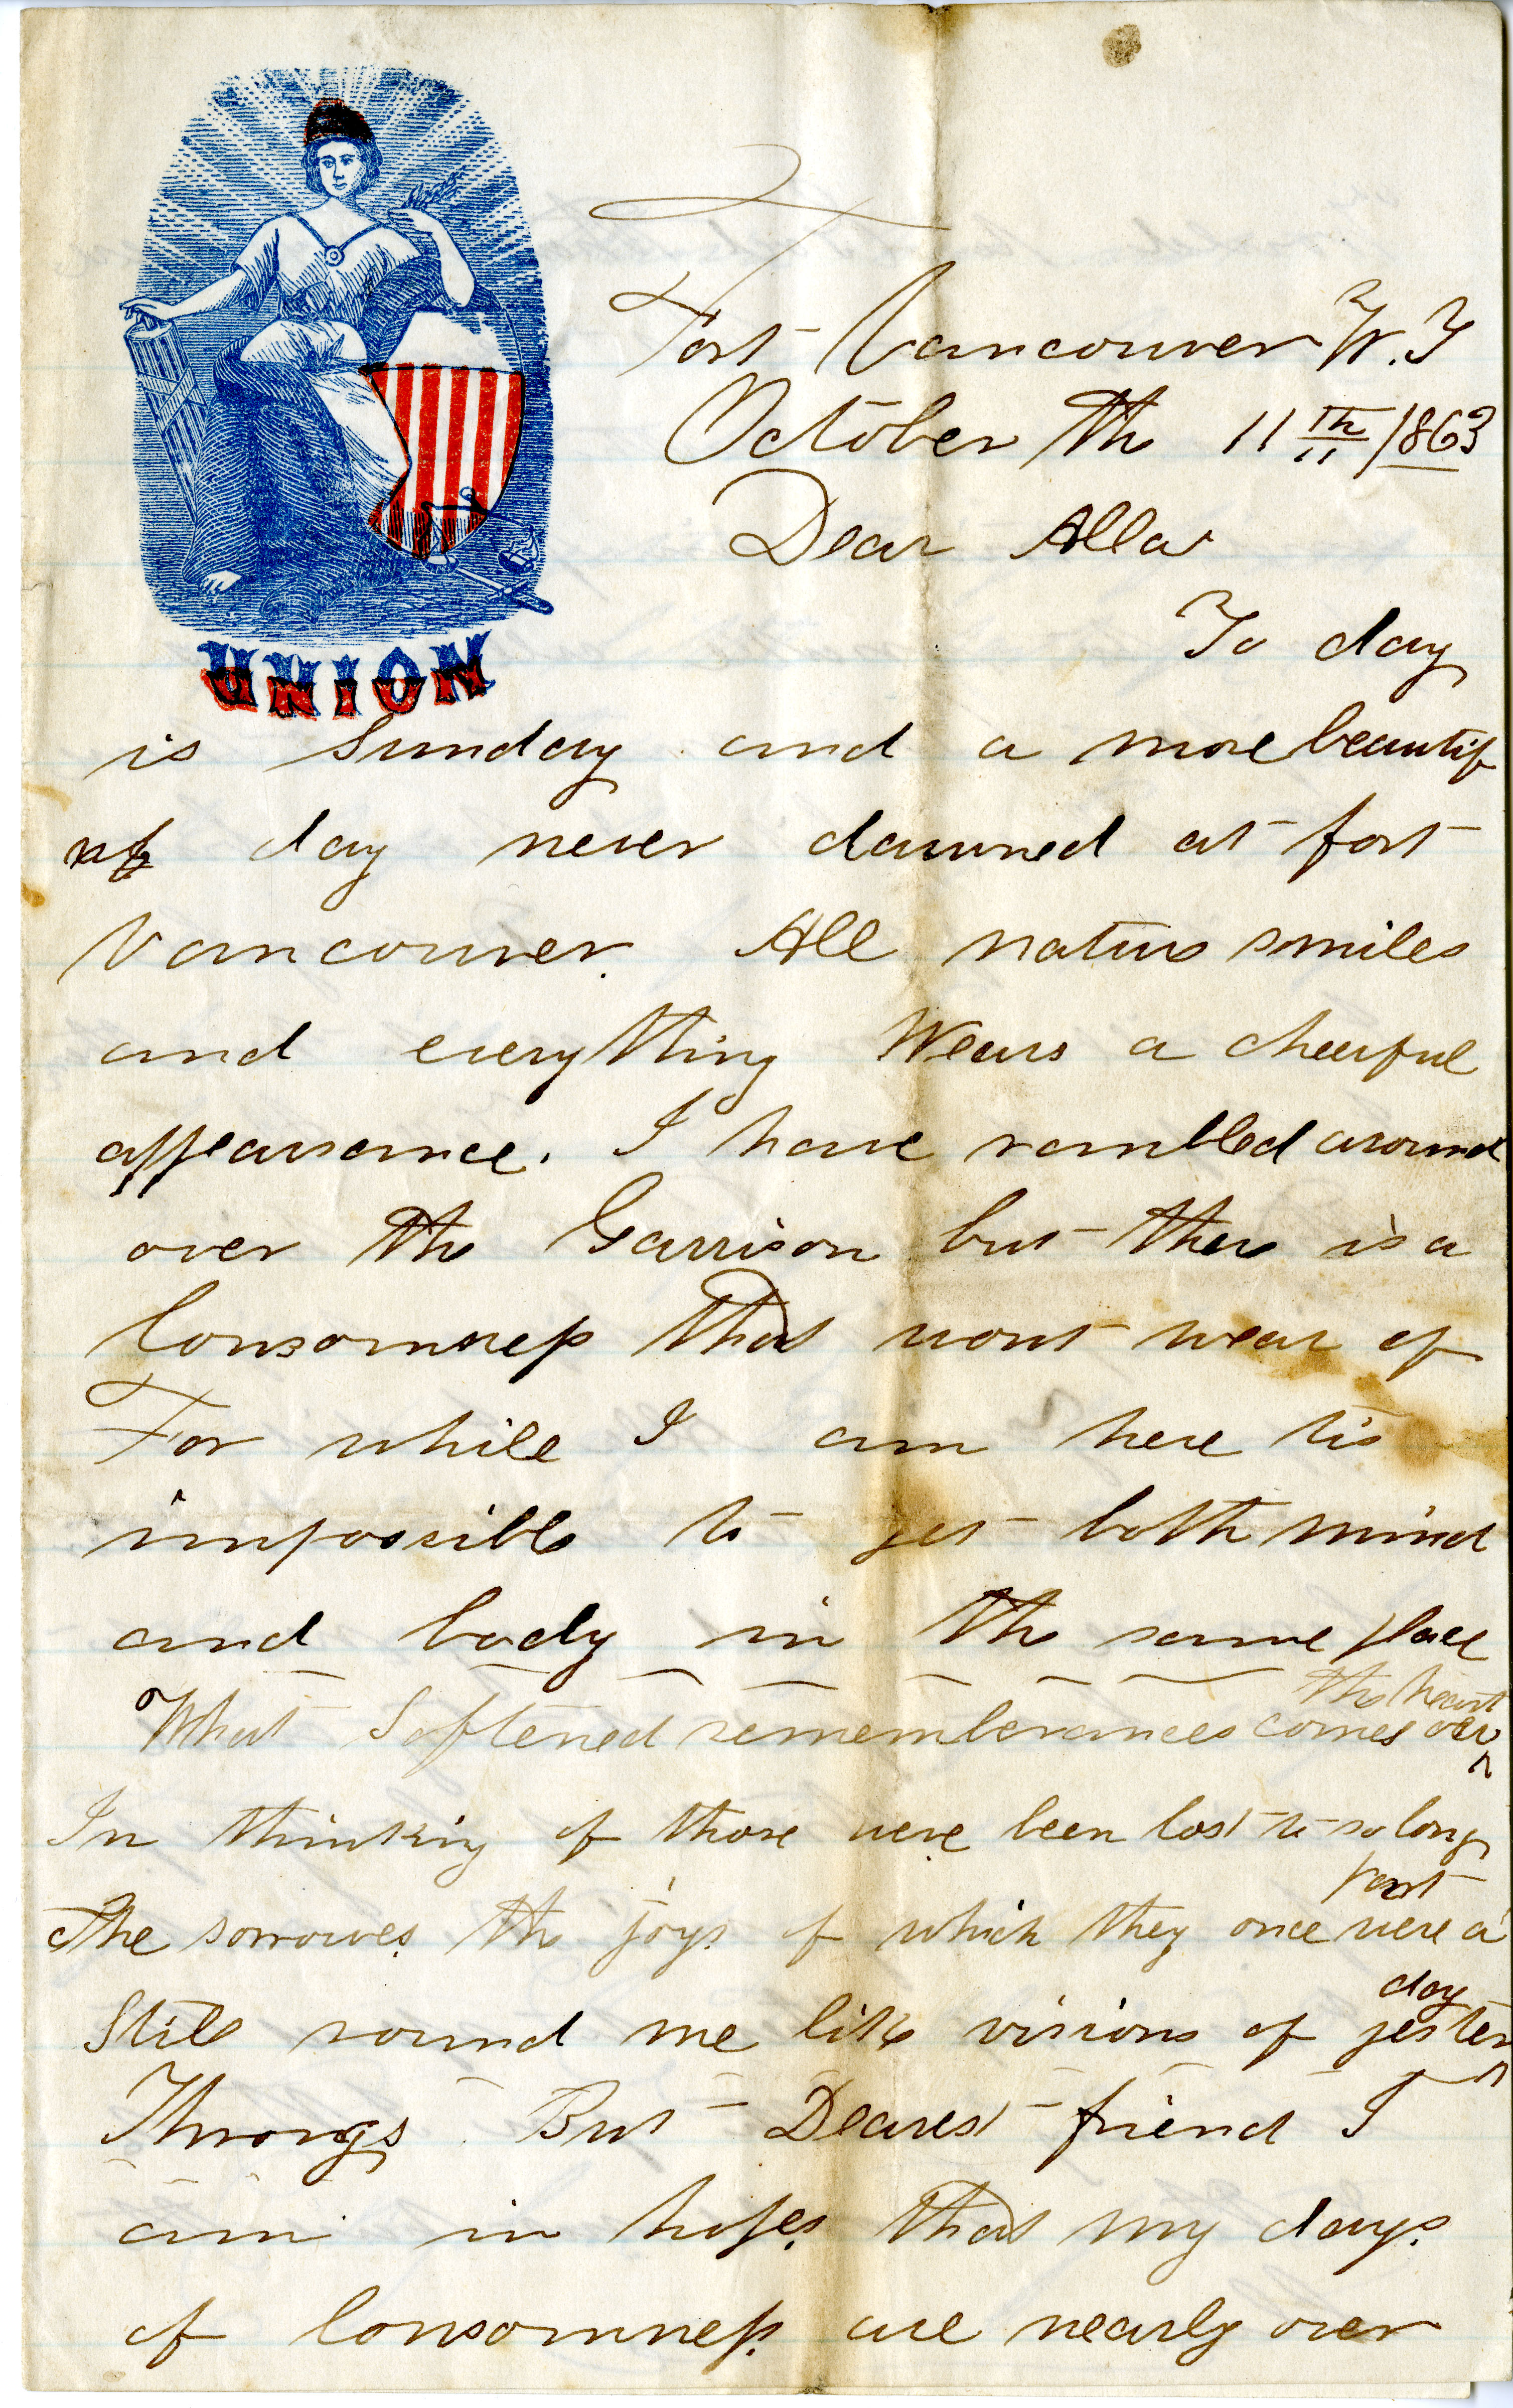 UNION
Fort Vancouver W.T
October the 11th 1863
Dear Alla
To day
is Sunday and a more beautif
ul day never dawned at fort
Vancouver. All nature smiles
and everything Wears a cheerful
appearance. I have rambled around
over the Garrison but there is a
lonsomness that wont wear of
For while I am here tis
impossible to get both mind
and body in the same place
the heart
What Softened rememberances comes oer
In thinking of those weve been lost to so long
part
The sorrowes the joys of which they once were a
day
Still round me like visions of yester
Throngs. But Dearest friend I
am in hopes that my days
of lonsomness are nearly over